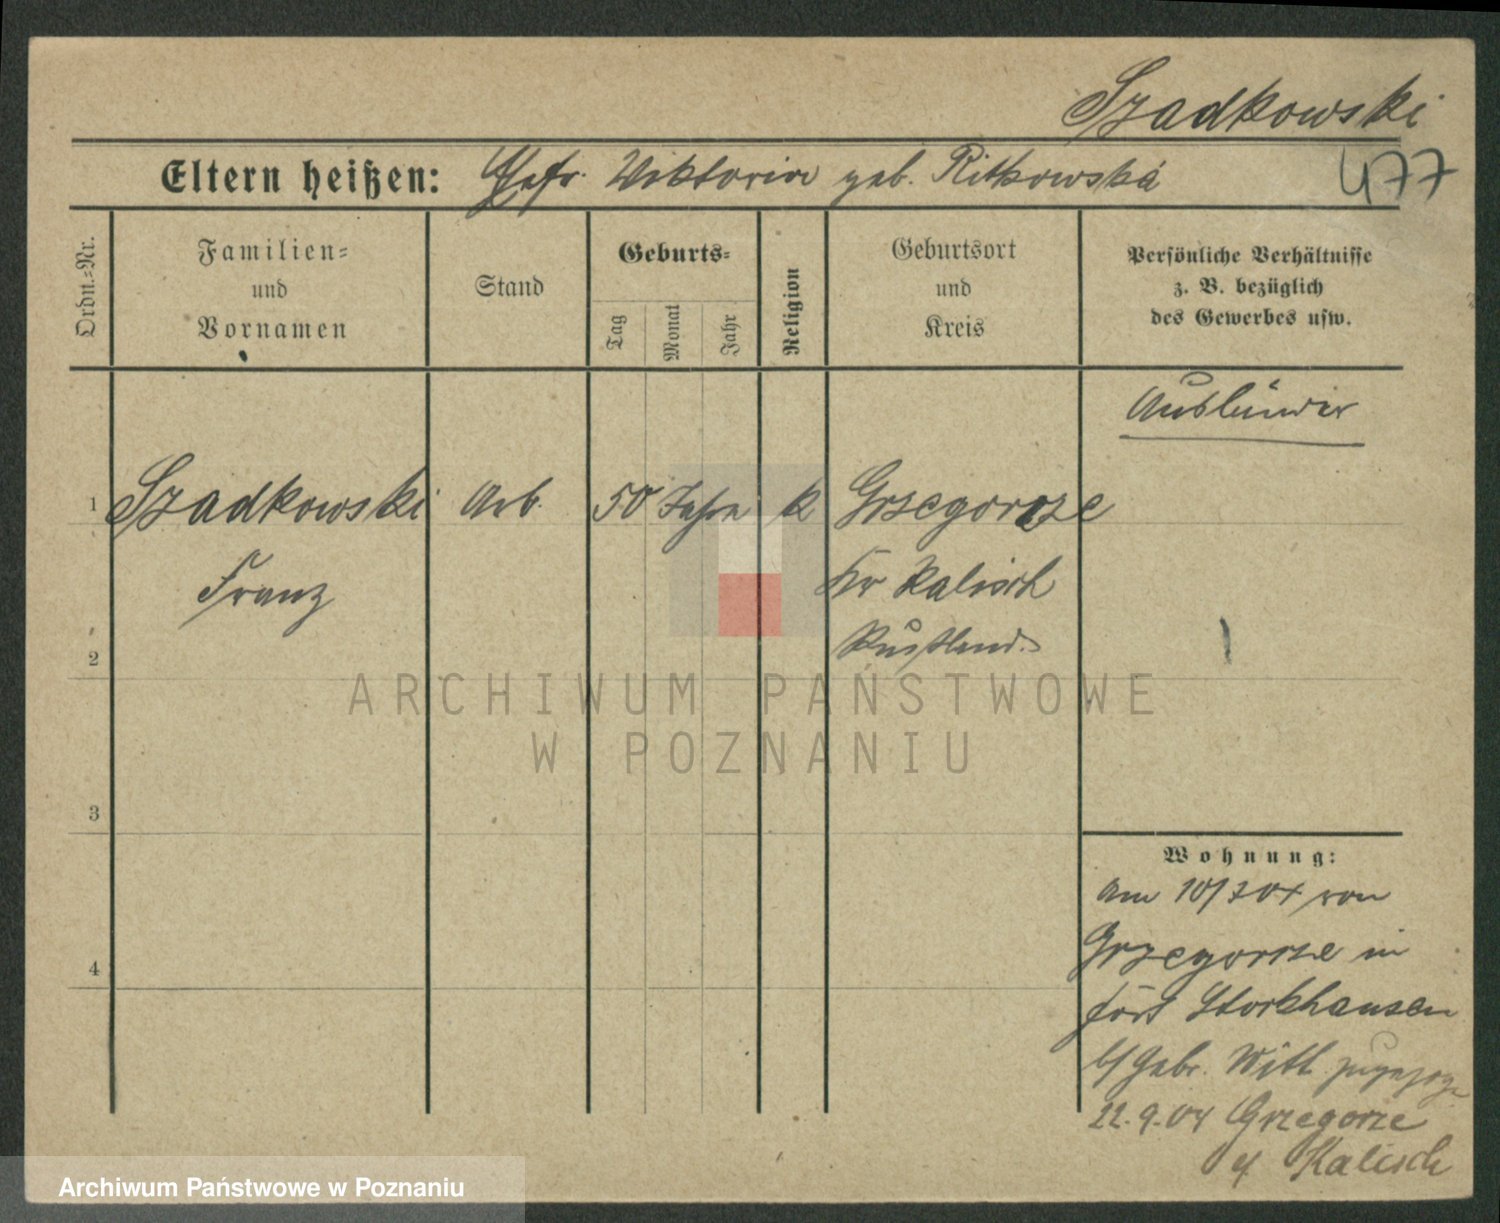 Szadkowski
Eltern heißen: Ehefr. Viktoria geb. Ritkowska
477
Ordn.=Nr.
Familien=
und
Vornamen
Stand
Geburts=
Tag
Monat
Jahr
Religion
Geburtsort
und
Kreis
Persönliche Verhältnisse
z. B. bezüglich
des Gewerbes usw.
Ausländer
1 Szadkowski Arb. 50 Jahre k Grzegorzze
Franz Kr Kalisch
Russland.
2
3
4
Wohnung:
am von
in
Fort
b/ Gebr. Witt zugezoge
22.9.04 Grzegorze
Kalisch
ARCHIWUM PAŃSTWOWE
W POZNANIU
Archiwum Państwowe w Poznaniu